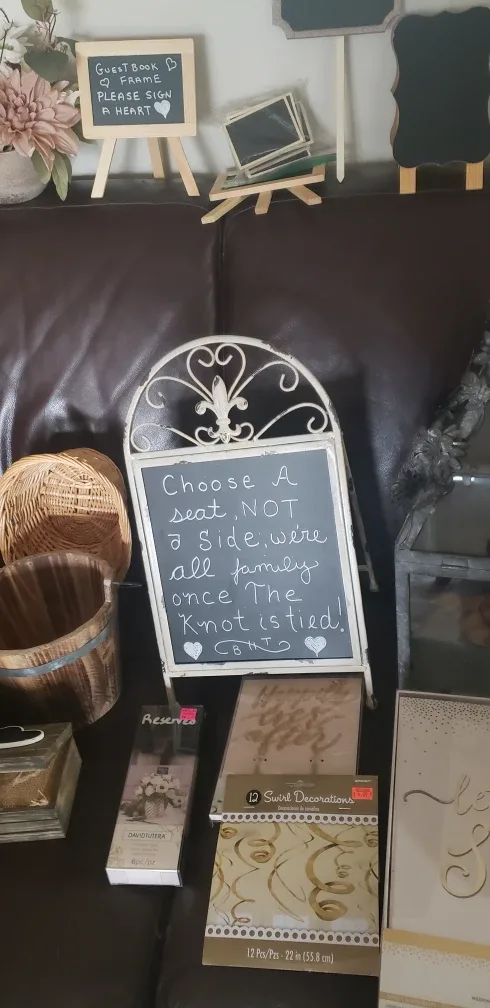 GUEST BOOK
FRAME
PLEASE SIGN
A HEART
Choose A
seat, NOT
a Side, we're
all family
once The
Knot is tied!
B H T
Reserved
DAVID TUTERA
12 Swirl Decorations
12 Pcs/Pzs - 22 in (55.8 cm)